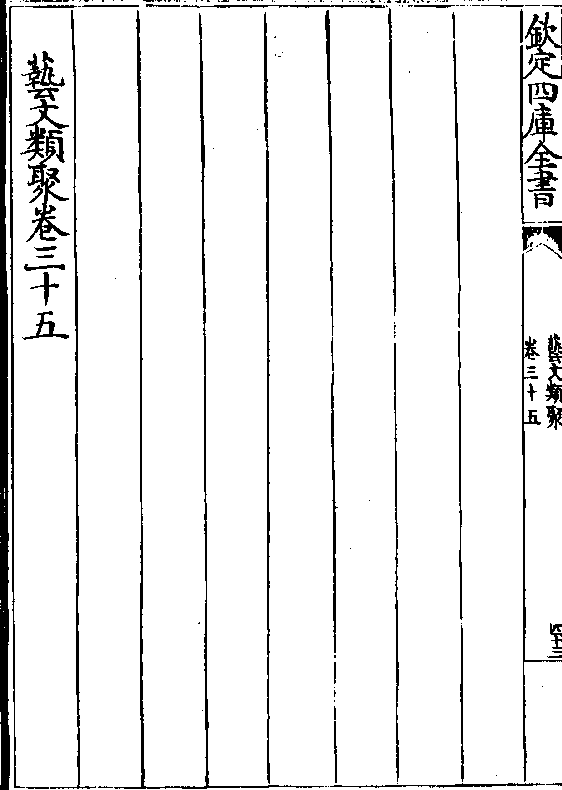 欽定四庫全書
藝文類聚
卷三十五
四十三
藝文類聚卷三十五